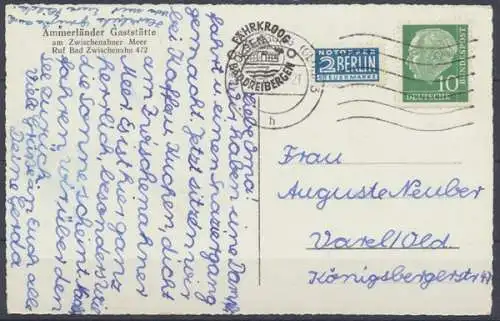 Ammerländer Gaststätte
am Zwischenahner Meer
Ruf Bad Zwischenahn 472
Liebe Oma!
Wir haben eine Dampfer
fahrt u. einen Spaziergang
gemacht. Jetzt sitzen wir
bei Kaffee u. Kuchen, dicht
am Zwischenahner
Meer. Es ist hier ganz
herrlich, besonders wenn
die Sonne scheint.
fahren wir über den
See zurück.
Viele Grüße an Euch alle
Deine Gerda
FÄHRKROOG
DREIBERGEN
h
NOTOPFER
2 BERLIN
STEUERMARKE
DEUTSCHE BUNDESPOST
10
Frau
Auguste Neuber
Varel/Old.
Königsbergerstr.